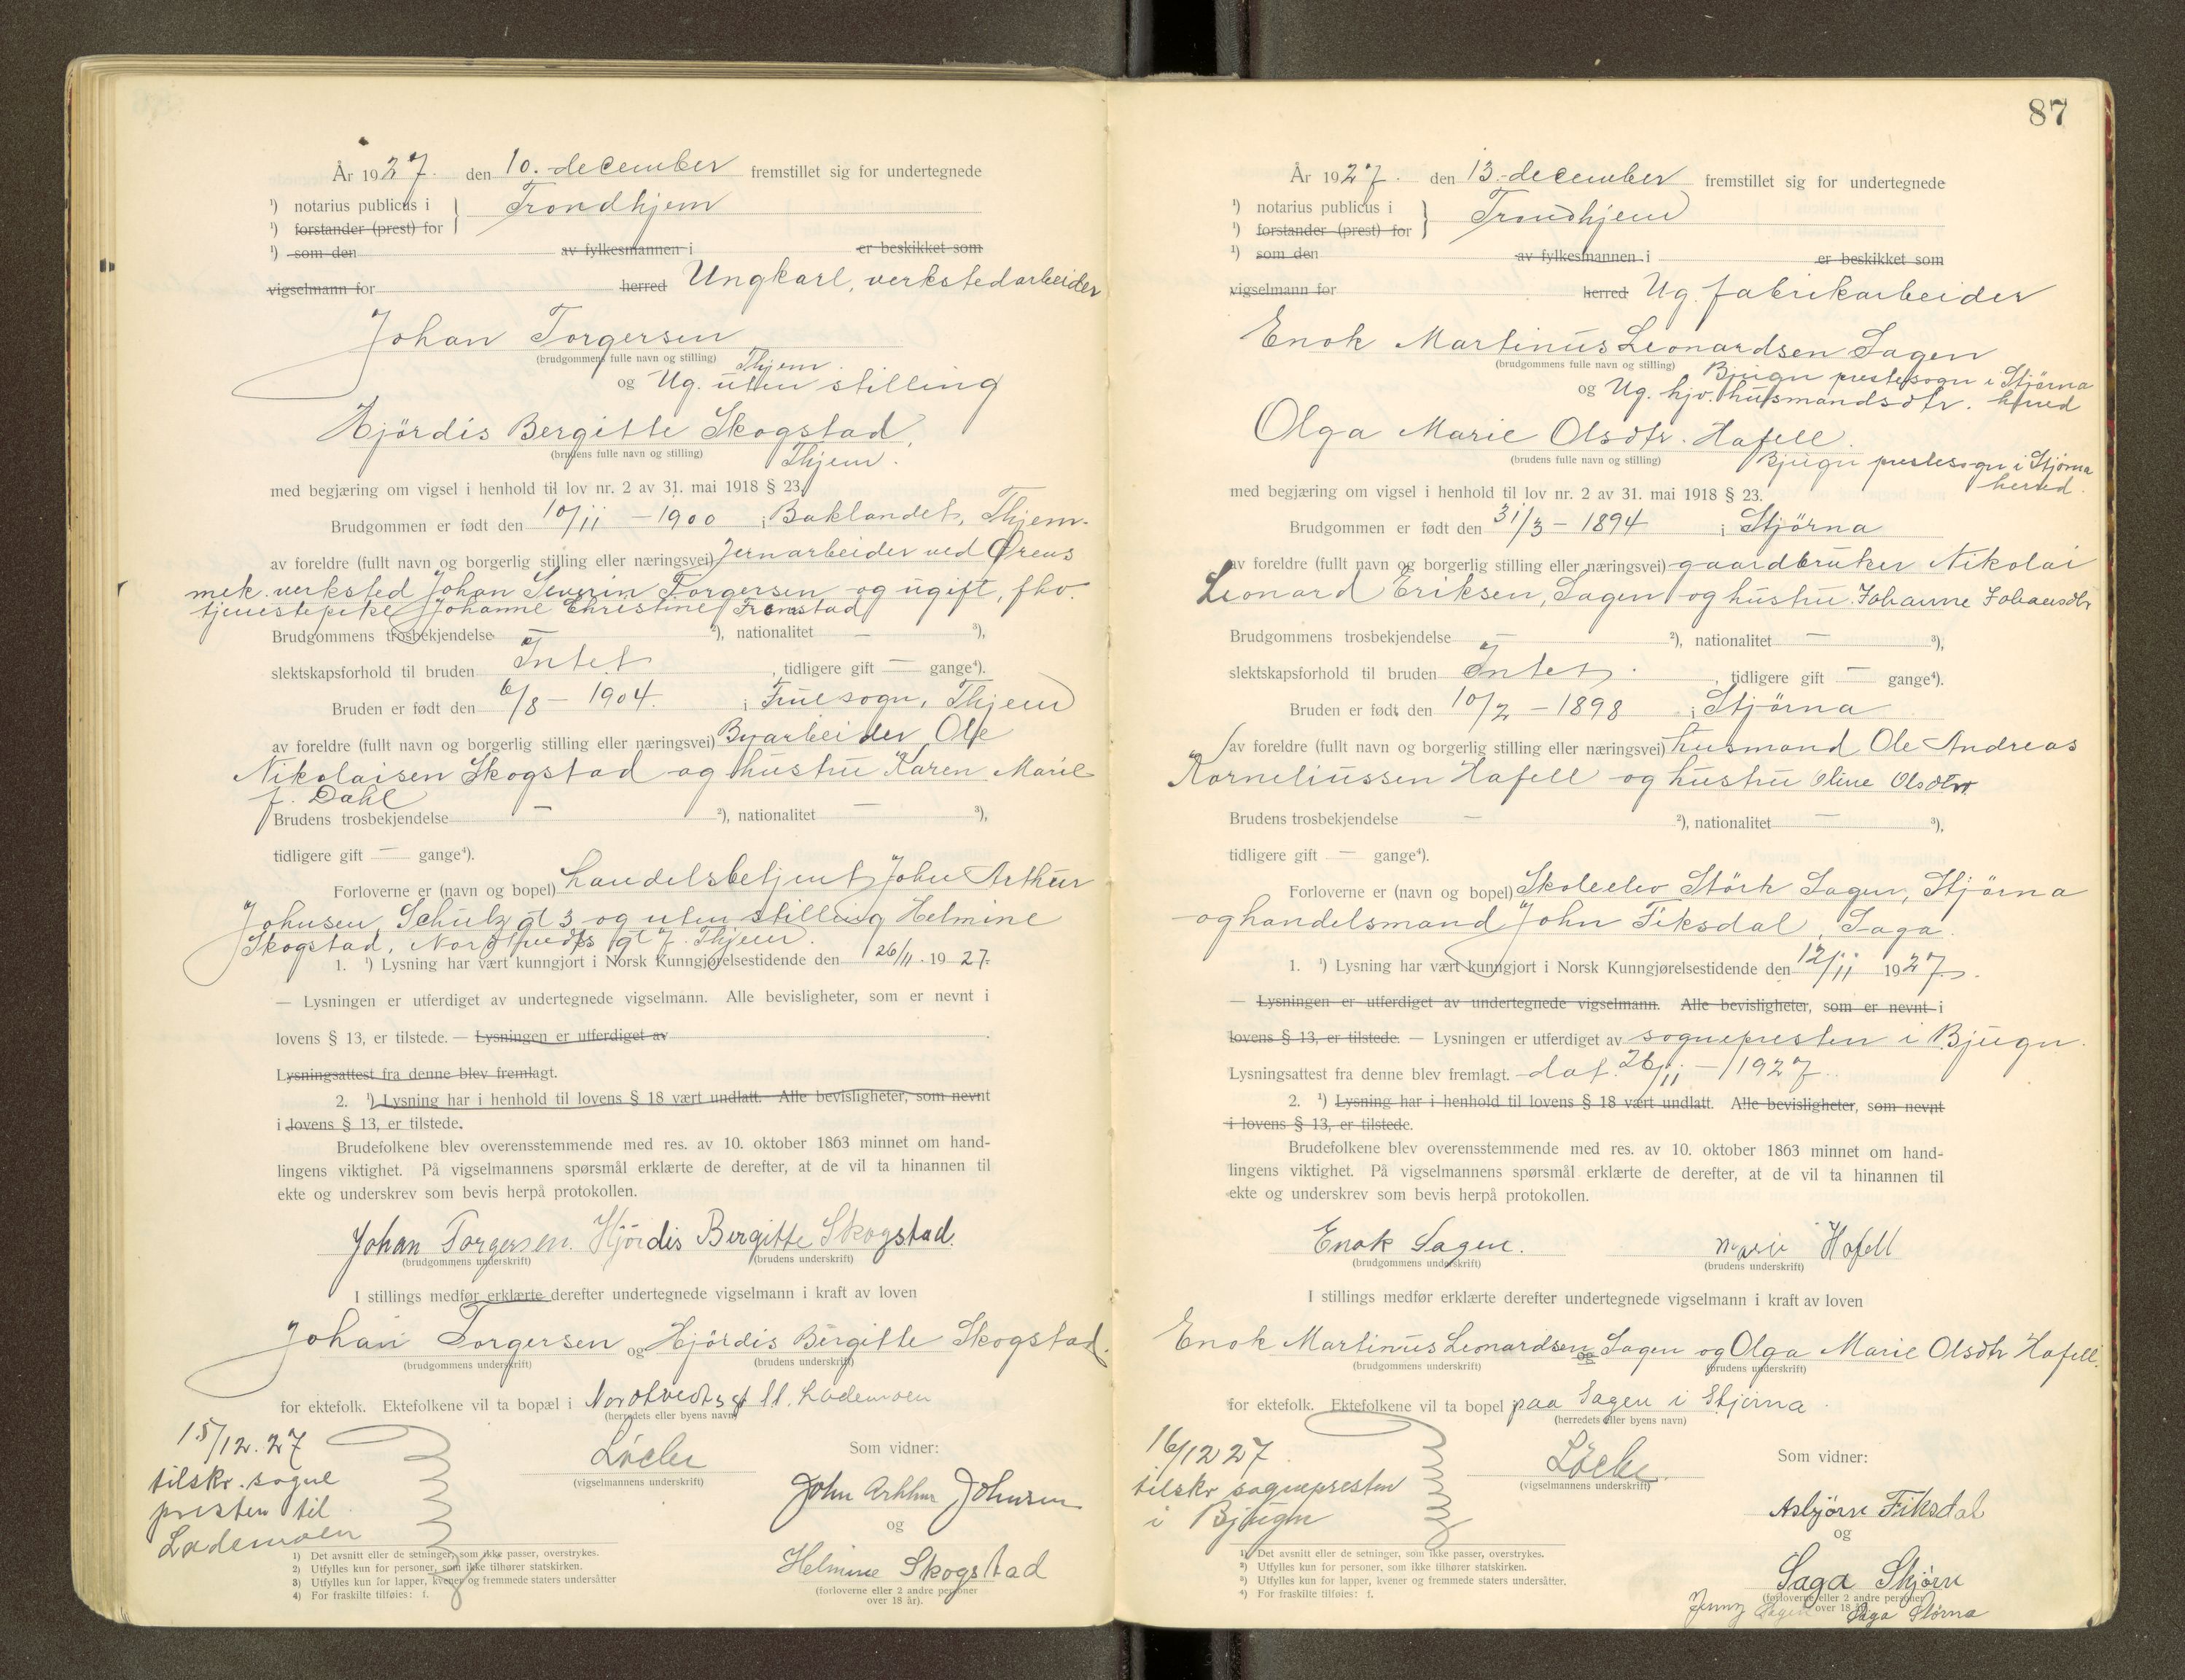 År 1927. den 10. december fremstillet sig for undertegnede
¹) notarius publicus i } Trondhjem
¹) forstander (prest) for
¹) som den av fylkesmannen i er beskikket som
vigselmann for herred Ungkarl, verkstedarbeider
Johan Torgersen
(brudgommens fulle navn og stilling) Thjem.
og Ug. uten stilling
Hjördis Bergitte Skogstad,
(brudens fulle navn og stilling) Thjem.
med begjæring om vigsel i henhold til lov nr. 2 av 31. mai 1918 § 23.
Brudgommen er født den 10/11 - 1900 i Baklandet, Thjem.
av foreldre (fullt navn og borgerlig stilling eller næringsvei) Jernarbeider ved Ørens
mek. verksted Johan Severin Torgersen og ugift, fhv.
tjenestepike Johanne Christine Fremstad
Brudgommens trosbekjendelse ²), nationalitet — ³),
slektskapsforhold til bruden Intet, tidligere gift — gange⁴).
Bruden er født den 6/8 - 1904. i Fruesogn, Thjem
av foreldre (fullt navn og borgerlig stilling eller næringsvei) Byarbeider Ole
Nikolaisen Skogstad og hustru Karen Marie
f. Dahl
Brudens trosbekjendelse — ²), nationalitet — ³),
tidligere gift — gange⁴).
Forloverne er (navn og bopel) handelsbetjent John Arthur
Johnsen, Schulz gt 3 og uten stilling Helmine
Skogstad, Nordtvedts gt 7. Thjem.
1. ¹) Lysning har vært kunngjort i Norsk Kunngjørelsestidende den 26/11. 1927.
— Lysningen er utferdiget av undertegnede vigselmann. Alle bevisligheter, som er nevnt i
lovens § 13, er tilstede. — Lysningen er utferdiget av
Lysningsattest fra denne blev fremlagt.
2. ¹) Lysning har i henhold til lovens § 18 vært undlatt. Alle bevisligheter, som nevnt
i lovens § 13, er tilstede.
Brudefolkene blev overensstemmende med res. av 10. oktober 1863 minnet om hand-
lingens viktighet. På vigselmannens spørsmål erklærte de derefter, at de vil ta hinannen til
ekte og underskrev som bevis herpå protokollen.
Johan Torgersen. Hjördis Bergitte Skogstad.
(brudgommens underskrift) (brudens underskrift)
I stillings medfør erklærte derefter undertegnede vigselmann i kraft av loven
Johan Torgersen og Hjördis Bergitte Skogstad.
(brudgommens underskrift) (brudens underskrift)
for ektefolk. Ektefolkene vil ta bopæl i Nordtvedts gt 11. Lademoen
(herredets eller byens navn)
15/12.27
tilskr. sogne
presten til
Lademoen
(vigselmannens underskrift)
Som vidner:
John Arthur Johnsen
og
Helmine Skogstad
(forloverne eller 2 andre personer
over 18 år).
1) Det avsnitt eller de setninger, som ikke passer, overstrykes.
2) Utfylles kun for personer, som ikke tilhører statskirken.
3) Utfylles kun for lapper, kvener og fremmede staters undersåtter
4) For fraskilte tilføies: f.
87
År 1927. den 13. december fremstillet sig for undertegnede
¹) notarius publicus i } Trondhjem
¹) forstander (prest) for
¹) som den av fylkesmannen i er beskikket som
vigselmann for herred Ug. fabrikarbeider
Enok Martinus Leonardsen Sagen
(brudgommens fulle navn og stilling) Bjugn prestesogn i Stjörna
og Ug. hjv. husmandsdtr. herred
Olga Marie Olsdtr. Hafell.
(brudens fulle navn og stilling) Bjugn prestesogn i Stjörna
herred.
med begjæring om vigsel i henhold til lov nr. 2 av 31. mai 1918 § 23.
Brudgommen er født den 31/3 - 1894 i Stjörna
av foreldre (fullt navn og borgerlig stilling eller næringsvei) gaardbruker Nikolai
Leonard Eriksen, Sagen og hustru Johanne Johansdtr
Brudgommens trosbekjendelse — ²), nationalitet — ³),
slektskapsforhold til bruden Intet. , tidligere gift — gange⁴).
Bruden er født den 10/2 - 1898 i Stjörna
av foreldre (fullt navn og borgerlig stilling eller næringsvei) husmand Ole Andreas
Korneliussen Hafell og hustru Oline Olsdtr.
Brudens trosbekjendelse — ²), nationalitet — ³),
tidligere gift — gange⁴).
Forloverne er (navn og bopel) Skoleelev Störk Sagen, Stjörna
og handelsmand John Fiksdal, Saga.
1. ¹) Lysning har vært kunngjort i Norsk Kunngjørelsestidende den 12/11 1927.
— Lysningen er utferdiget av undertegnede vigselmann. Alle bevisligheter, som er nevnt i
lovens § 13, er tilstede. — Lysningen er utferdiget av sognepresten i Bjugn.
Lysningsattest fra denne blev fremlagt. dat. 26/11 - 1927.
2. ¹) Lysning har i henhold til lovens § 18 vært undlatt. Alle bevisligheter, som nevnt
i lovens § 13, er tilstede.
Brudefolkene blev overensstemmende med res. av 10. oktober 1863 minnet om hand-
lingens viktighet. På vigselmannens spørsmål erklærte de derefter, at de vil ta hinannen til
ekte og underskrev som bevis herpå protokollen.
Enok Sagen. Marie Hafell
(brudgommens underskrift) (brudens underskrift)
I stillings medfør erklærte derefter undertegnede vigselmann i kraft av loven
Enok Martinus Leonardsen Sagen og Olga Marie Olsdtr Hafell.
(brudgommens underskrift) og (brudens underskrift)
for ektefolk. Ektefolkene vil ta bopel paa Sagen i Stjörna.
(herredets eller byens navn)
16/12 27
tilskr sognepresten
i Bjugn
(vigselmannens underskrift)
Som vidner:
Asbjörn Fiksdal
og
Saga Stjörn
(forloverne eller 2 andre personer
over 18 år).
Jenny Sagen Saga Störna
1) Det avsnitt eller de setninger, som ikke passer, overstrykes.
²) Utfylles kun for personer, som ikke tilhører statskirken.
³) Utfylles kun for lapper, kvener og fremmede staters undersåtter.
⁴) For fraskilte tilføies: f.